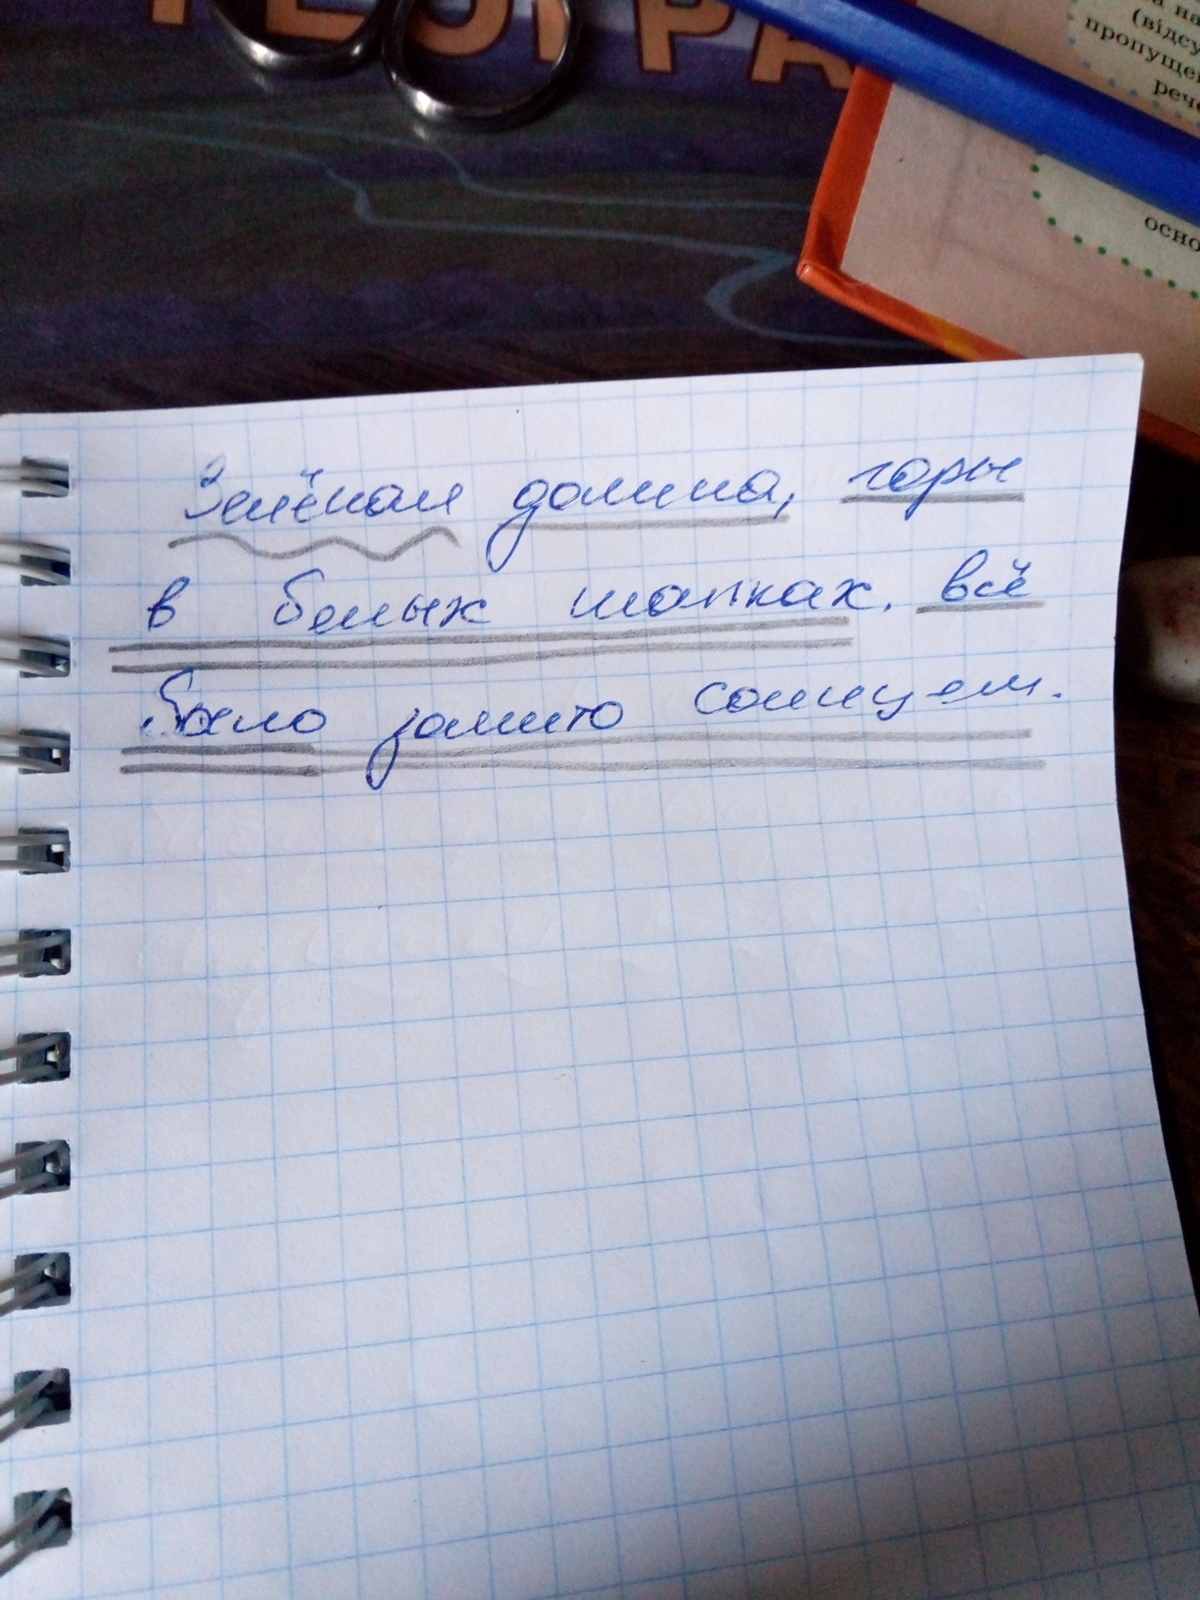 ГЕОГРА
на
(відсу
пропущен
рече
осно
Зелёная долина, горы
в белых шапках, всё
было залито солнцем.